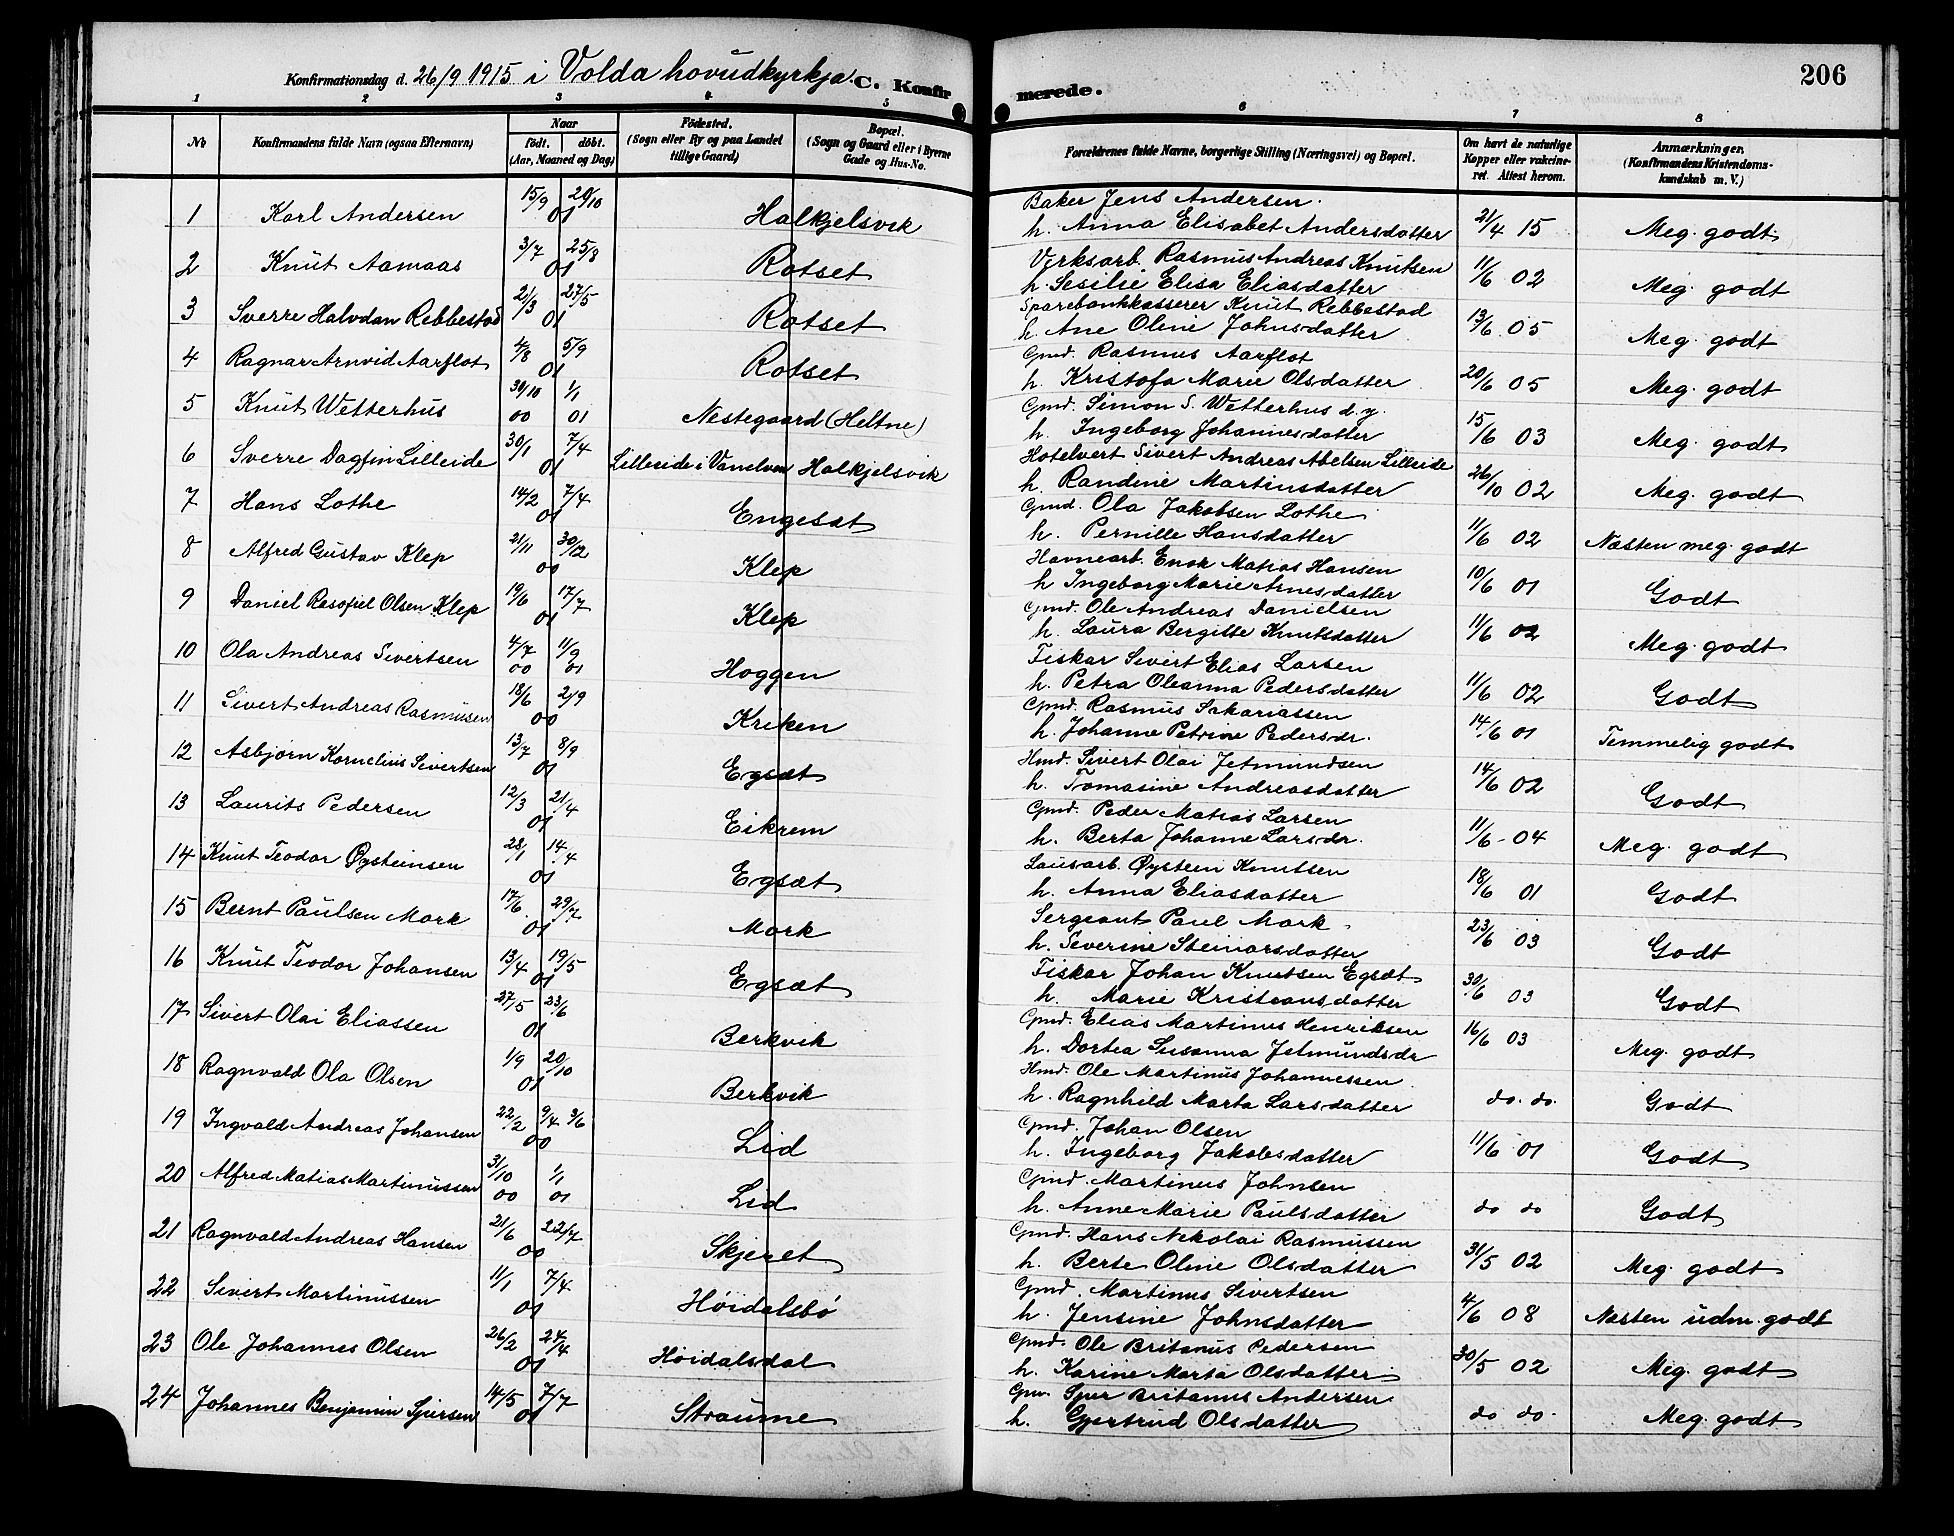 Konfirmationsdag d. 26/9 1915 i Volda hovudkyrkja. C. Konfirmerede. 206
1 2 3 4 5 6 7 8
No
Konfirmandens fulde Navn (ogsaa Efternavn)
Naar
født. døbt.
(Aar, Maaned og Dag)
Fødested.
(Sogn eller By og paa Landet
tillige Gaard)
Bopæl.
(Sogn og Gaard eller i Byerne
Gade og Hus-No.
Forældrenes fulde Navne, borgerlige Stilling (Næringsvei) og Bopæl.
Om havt de naturlige
Kopper eller vakcineret. Attest herom.
Anmærkninger.
(Konfirmandens Kristendomskundskab m. V.)
1 Karl Andersen 15/9 20/10 01 Halkjelsvik Baker Jens Andersen.
h. Anna Elisabet Andersdatter 21/4 15 Meg. godt
2 Knut Aamaas 3/7 25/8 01 Rotset Verksarb. Rasmus Andreas Knutsen
h. Sesilie Elisa Eliasdatter 11/6 02 Meg. godt
3 Sverre Halvdan Rebbestad 21/3 27/5 01 Rotset Sparebankkasserer Knut Rebbestad
h. Ane Oline Johnsdatter 13/6 05 Meg. godt
4 Ragnar Arnvid Aarflot 4/8 5/9 01 Rotset Gmd. Rasmus Aarflot
h. Kristofa Marie Olsdatter 20/6 05 Meg. godt
5 Knut Wetterhus 30/10 00 1/1 01 Nestegaard (Heltne) Gmd. Simon S. Wetterhus d.y.
h. Ingeborg Johannesdatter 15/6 03 Meg. godt
6 Sverre Dagfin Lilleide 30/1 7/4 01 Lilleeide i Vanelven Halkjelsvik Hotelvert Sivert Andreas Abelsen Lilleide
h. Randine Martinsdatter 26/10 02 Meg. godt
7 Hans Lothe 14/2 7/4 01 Engesæt Gmd. Ola Jakobsen Lothe
h. Pernille Hansdatter 11/6 02 Næsten meg. godt
8 Alfred Gustav Klep 21/11 30/12 00 Klep Havnearb. Enok Matias Hansen
h Ingeborg Marie Arnesdatter 10/6 01 Godt
9 Daniel Rasofiel Olsen Klep 19/6 17/7 01 Klep Gmd. Ole Andreas Danielsen
h. Laura Bergitte Knutsdatter 11/6 02 Meg. godt
10 Ola Andreas Sivertsen 4/7 00 1/9 01 Hoggen Fiskar Sivert Elias Larsen
h. Petra Oleanna Pedersdatter 11/6 02 Godt
11 Sivert Andreas Rasmusen 18/6 2/9 00 Kriken Gmd. Rasmus Sakariassen
h. Johanne Petrine Pedersdr. 14/6 01 Temmelig godt
12 Asbjørn Kornelius Sivertsen 13/7 8/9 01 Egsæt Hmd. Sivert Olai Jetmundsen
h. Tomasine Andreasdatter 14/6 02 Godt
13 Laurits Pedersen 12/3 21/4 01 Eikrem Gmd. Peder Matias Larsen
h. Berta Johanne Larsdr. 11/6 04 Meg. godt
14 Knut Teodor Øysteinsen 28/1 14/4 01 Egsæt Lausarb. Øystein Knutsen
h. Anna Eliasdatter 18/6 01 Godt
15 Bernt Paulsen Mork 17/6 29/7 01 Mork Sergeant Paul Mork
h. Severine Steinarsdatter 23/6 03 Godt
16 Knut Teodor Johansen 13/4 19/5 01 Egsæt Fiskar Johan Knutsen Egsæt
h. Marie Kristiansdatter 30/6 03 Godt
17 Sivert Olai Eliassen 27/5 23/6 01 Berkvik Gmd. Elias Martinus Henriksen
h. Dortea Susanna Jetmundsdr 16/6 03 Meg. godt
18 Ragnvald Ola Olsen 1/9 20/10 01 Berkvik Hmd. Ole Martinus Johannessen
h. Ragnhild Marta Larsdatter do. do. Godt
19 Ingvald Andreas Johansen 22/2 9/4 3/6 00 Lid Gmd. Johan Olsen
h. Ingeborg Jakobsdatter 11/6 01 Godt
20 Alfred Matias Martinussen 31/10 00 1/1 01 Lid Gmd Martinus Johnsen
h. Anne Marie Paulsdatter do do Godt
21 Ragnvald Andreas Hansen 21/6 22/7 00 Skjeret Gmd. Hans Nekolai Rasmussen
h. Berte Oline Olsdatter 31/5 02 Meg. godt
22 Sivert Martinussen 11/1 7/4 01 Høidalsbø Gmd. Martinus Sivertsen
h. Jensine Johnsdatter 4/6 08 Næsten udm. godt
23 Ole Johannes Olsen 26/2 24/4 01 Høidalsdal Gmd. Ole Britanus Pedersen
h. Karine Marta Olsdatter 30/5 02 Meg. godt
24 Johannes Benjamin Spersen 14/5 7/7 01 Straume Gm. Sper Britanus Andersen
h. Gjertrud Olsdatter do do. Meg. godt